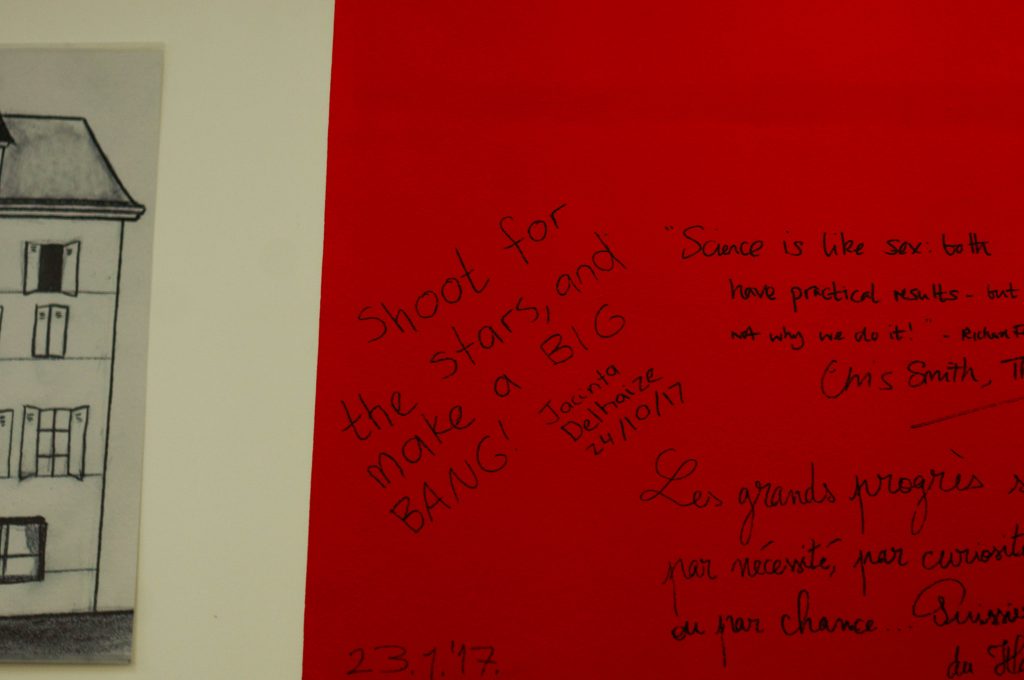 Shoot for
the stars, and
make a BIG
BANG!
Jacinta
Delhaize
24/10/17
"Science is like sex: both
have practical results - but
not why we do it!" - Richard F
Chris Smith, Th
Les grands progrès s
par nécessité, par curiosit
ou par chance... Puissi
du
23.1.'17.